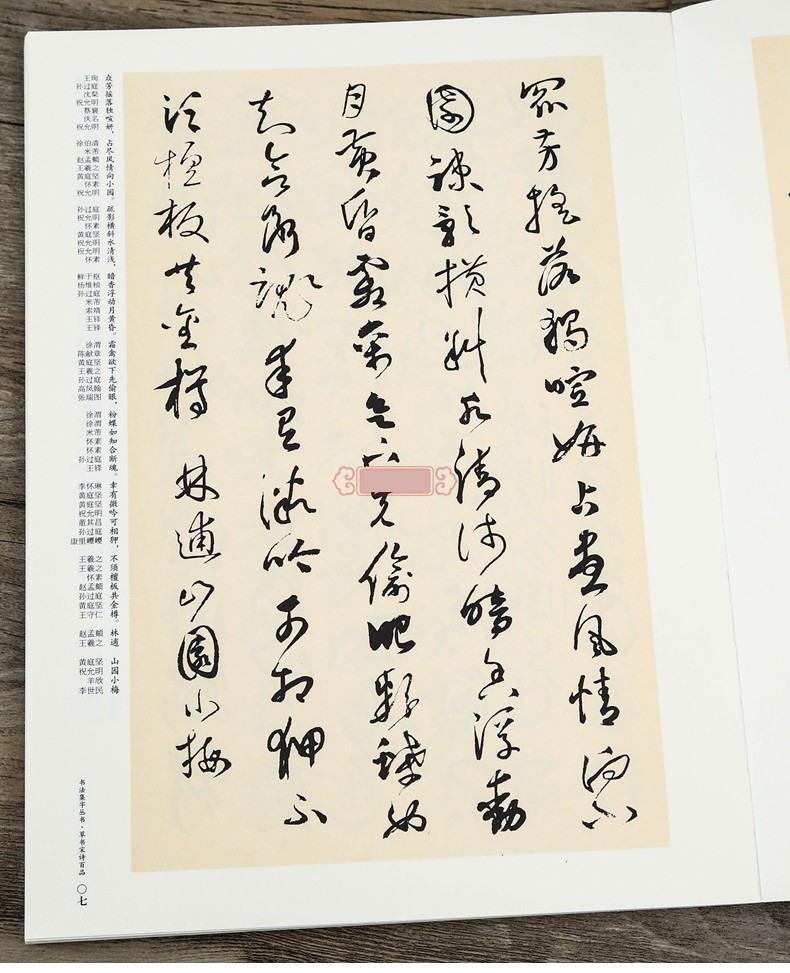 眾芳摇落獨喧妍占盡風情向小
園疎影横斜水清浅暗香浮動
月黄昏霜禽欲下先偷眼粉蝶如
知合断魂幸有微吟可相狎不
須檀板共金樽 林逋山園小梅
众芳摇落独喧妍，占尽风情向小园。疏影横斜水清浅，暗香浮动月黄昏。霜禽欲下先偷眼，粉蝶如知合断魂。幸有微吟可相狎，不须檀板共金樽。林逋 山园小梅
王珣
孙过庭
沈粲
祝允明
蔡襄
佚名
祝允明
徐伯清
米芾
赵孟頫
王羲之
黄庭坚
怀素
祝允明
孙过庭
祝允明
怀素
黄庭坚
祝允明
祝允明
怀素
鲜于枢
杨维桢
孙过庭
米芾
索靖
王铎
王铎
徐渭
陈献章
黄庭坚
王羲之
孙过庭
高凤翰
张瑞图
徐渭
徐渭
米芾
怀素
怀素
孙过庭
王铎
李怀琳
黄庭坚
黄庭坚
祝允明
董其昌
孙过庭
康里巎巎
王羲之
王羲之
怀素
赵孟頫
孙过庭
黄庭坚
王守仁
赵孟頫
王羲之
黄庭坚
祝允明
羊欣
李世民
书法集字丛书·草书宋诗百品
〇七